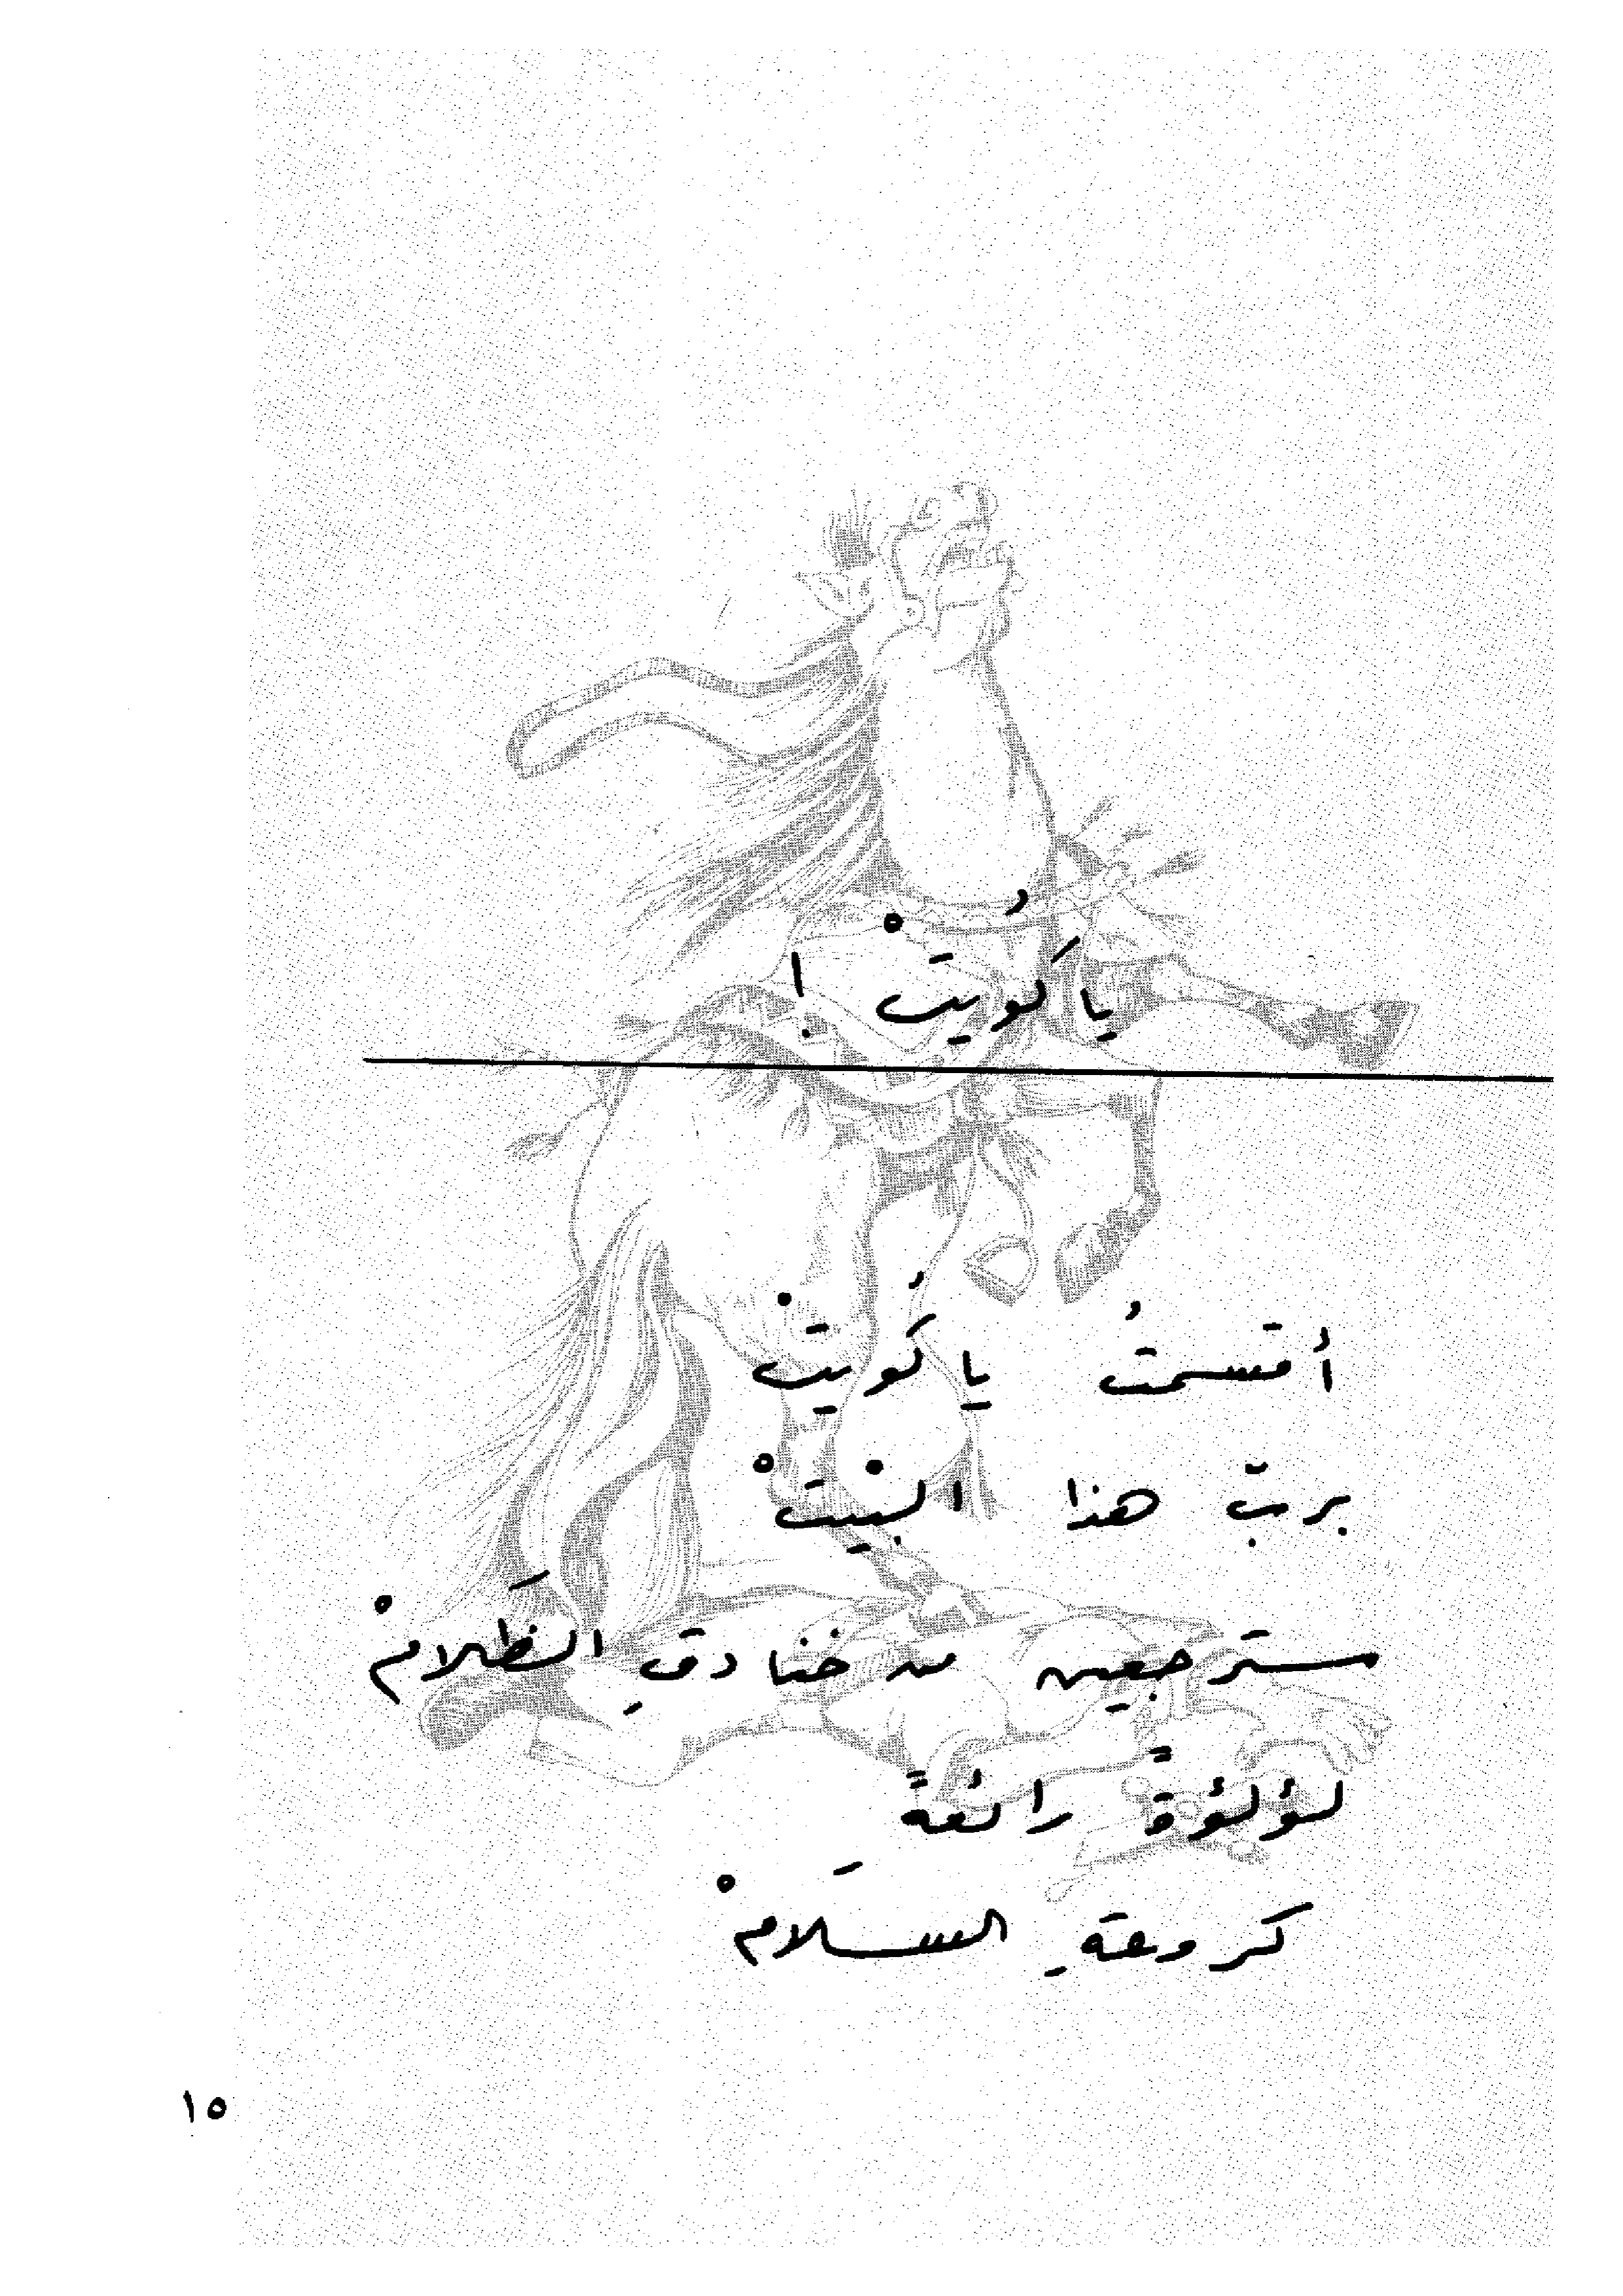 يا كُويتْ !
أقسمتُ يا كُويتْ
بربّ هذا البيتْ
سترجعين من خنادقِ الظَلامْ
لؤلؤةً رائعةً
كروعةِ السَلامْ
١٥